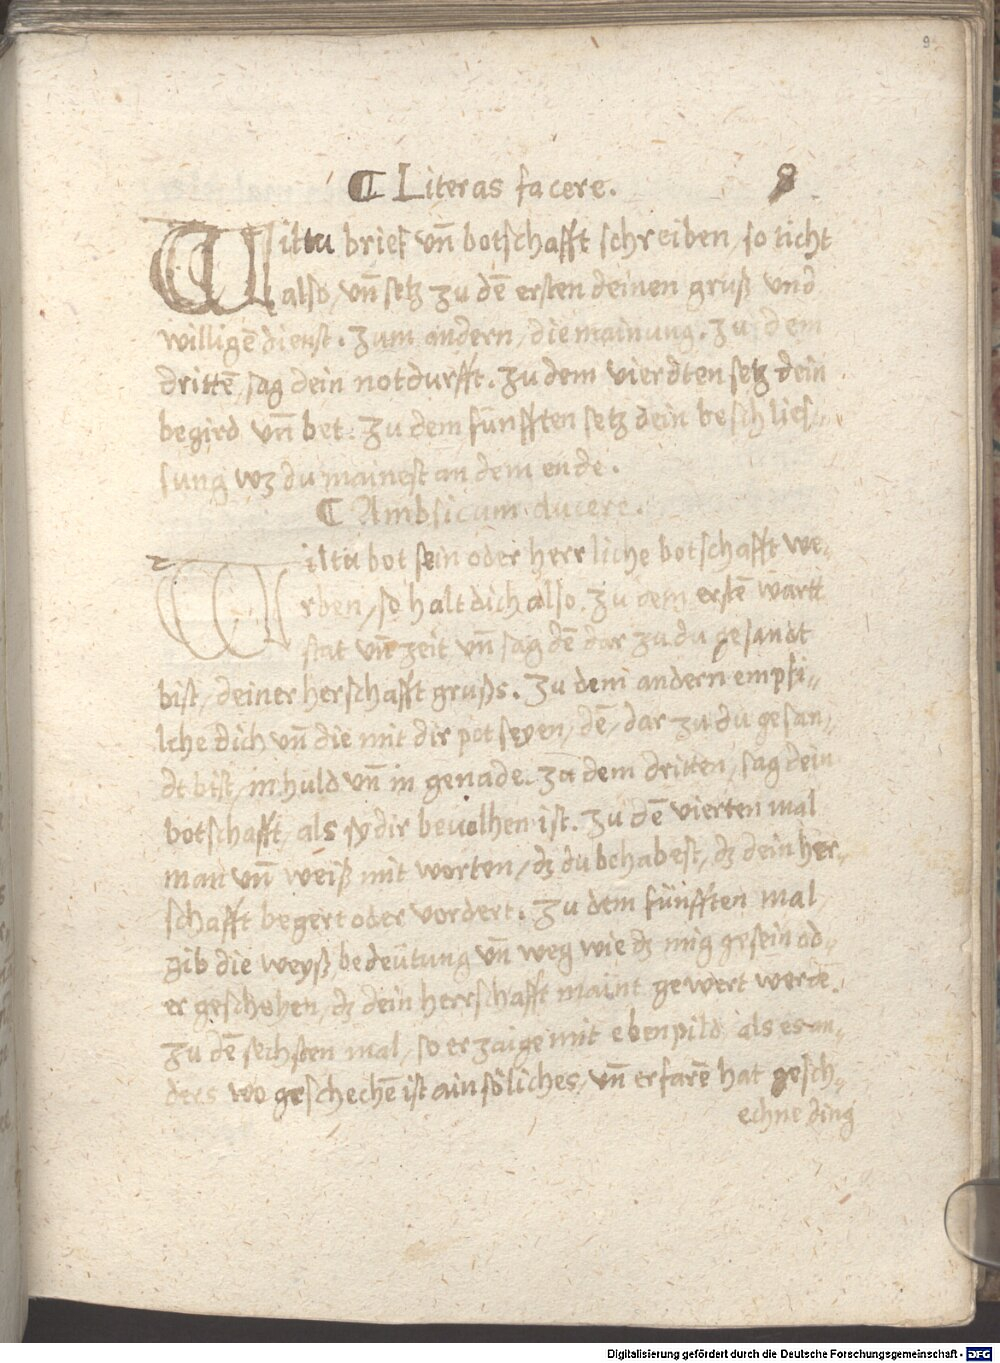 9
¶ Literas facere. 8
Wiltu brief vn̄ botschafft schreiben / so ticht
also / vn̄ setz zu dē ersten deinen gruß vnd
willigē dienst. Zum andern / die mainung. Zu dem
drittē / sag dein notdurfft. Zu dem vierdten setz dein
begird vn̄ bet. Zu dem fünfften setz dein beschlies=
sung wz du mainest an dem ende.
¶ Ambsicum ducere.
Wiltu bot sein oder herrliche botschafft we=
rben / so halt dich also. Zu dem erstē wartt
stat vn̄ zeit vn̄ sag dē dar zu du gesandt
bist / deiner herschafft gruß. Zu dem andern empfi=
lche dich vn̄ die mit dir pot seyen / dē / dar zu du gesan=
dt bist / in huld vn̄ in genade. Zu dem dritten / sag dein
botschafft / als sy dir beuolhen ist. Zu dē vierten mal
man vn̄ weiß mit worten / dz du behabest / dz dein her=
schafft begert oder vordert. Zu dem fünfften mal
gib die weyß / bedeütung vn̄ weg wie dz müg gesein od=
er geschehen / dz dein herrschafft maint gewert werdē.
Zu dē sechsten mal / so erzaige mit ebenpild als es an=
ders wo geschechē ist ain söliches / vn̄ erfarē hat gesch=
echne ding
Digitalisierung gefördert durch die Deutsche Forschungsgemeinschaft - DFG